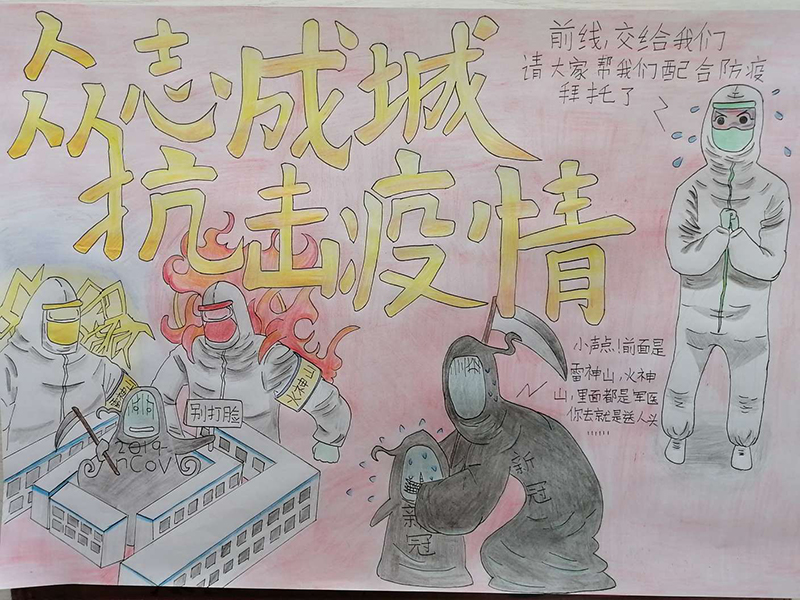 众志成城
抗击疫情
前线,交给我们
请大家帮我们配合防疫
拜托了
小声点!前面是
雷神山,火神
山,里面都是军医
你去就是送人头
......
火神山
别打脸
2019-
nCOV
新冠
新冠